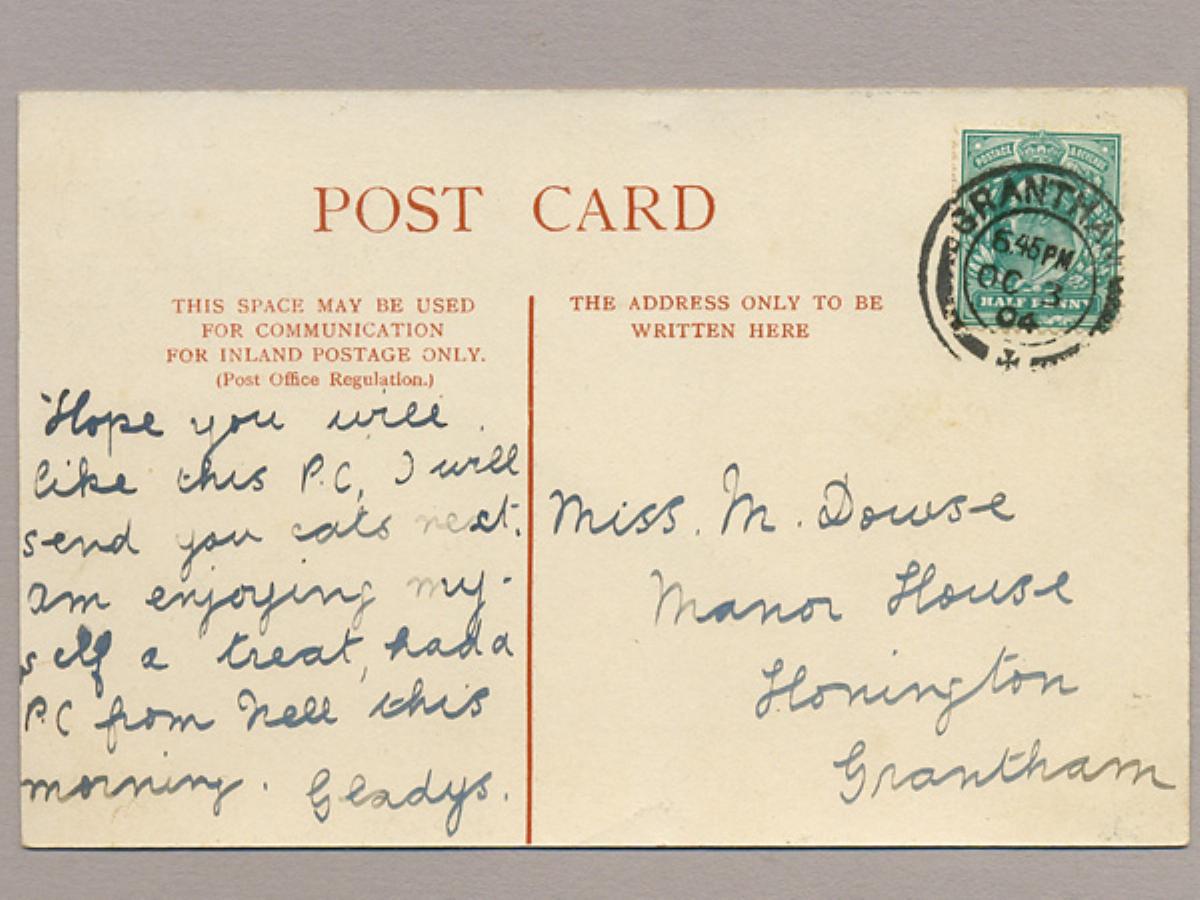 POST CARD
THIS SPACE MAY BE USED
FOR COMMUNICATION
FOR INLAND POSTAGE ONLY.
(Post Office Regulation.)
Hope you will
like this P.C, I will
send you cats next.
am enjoying my-
self a treat, had a
P.C from Nell this
morning. Gladys.
THE ADDRESS ONLY TO BE
WRITTEN HERE
Miss. M. Dowse
Manor House
Honington
Grantham
POSTAGE REVENUE
HALF PENNY
GRANTHAM
6.45 PM
OC 3
04